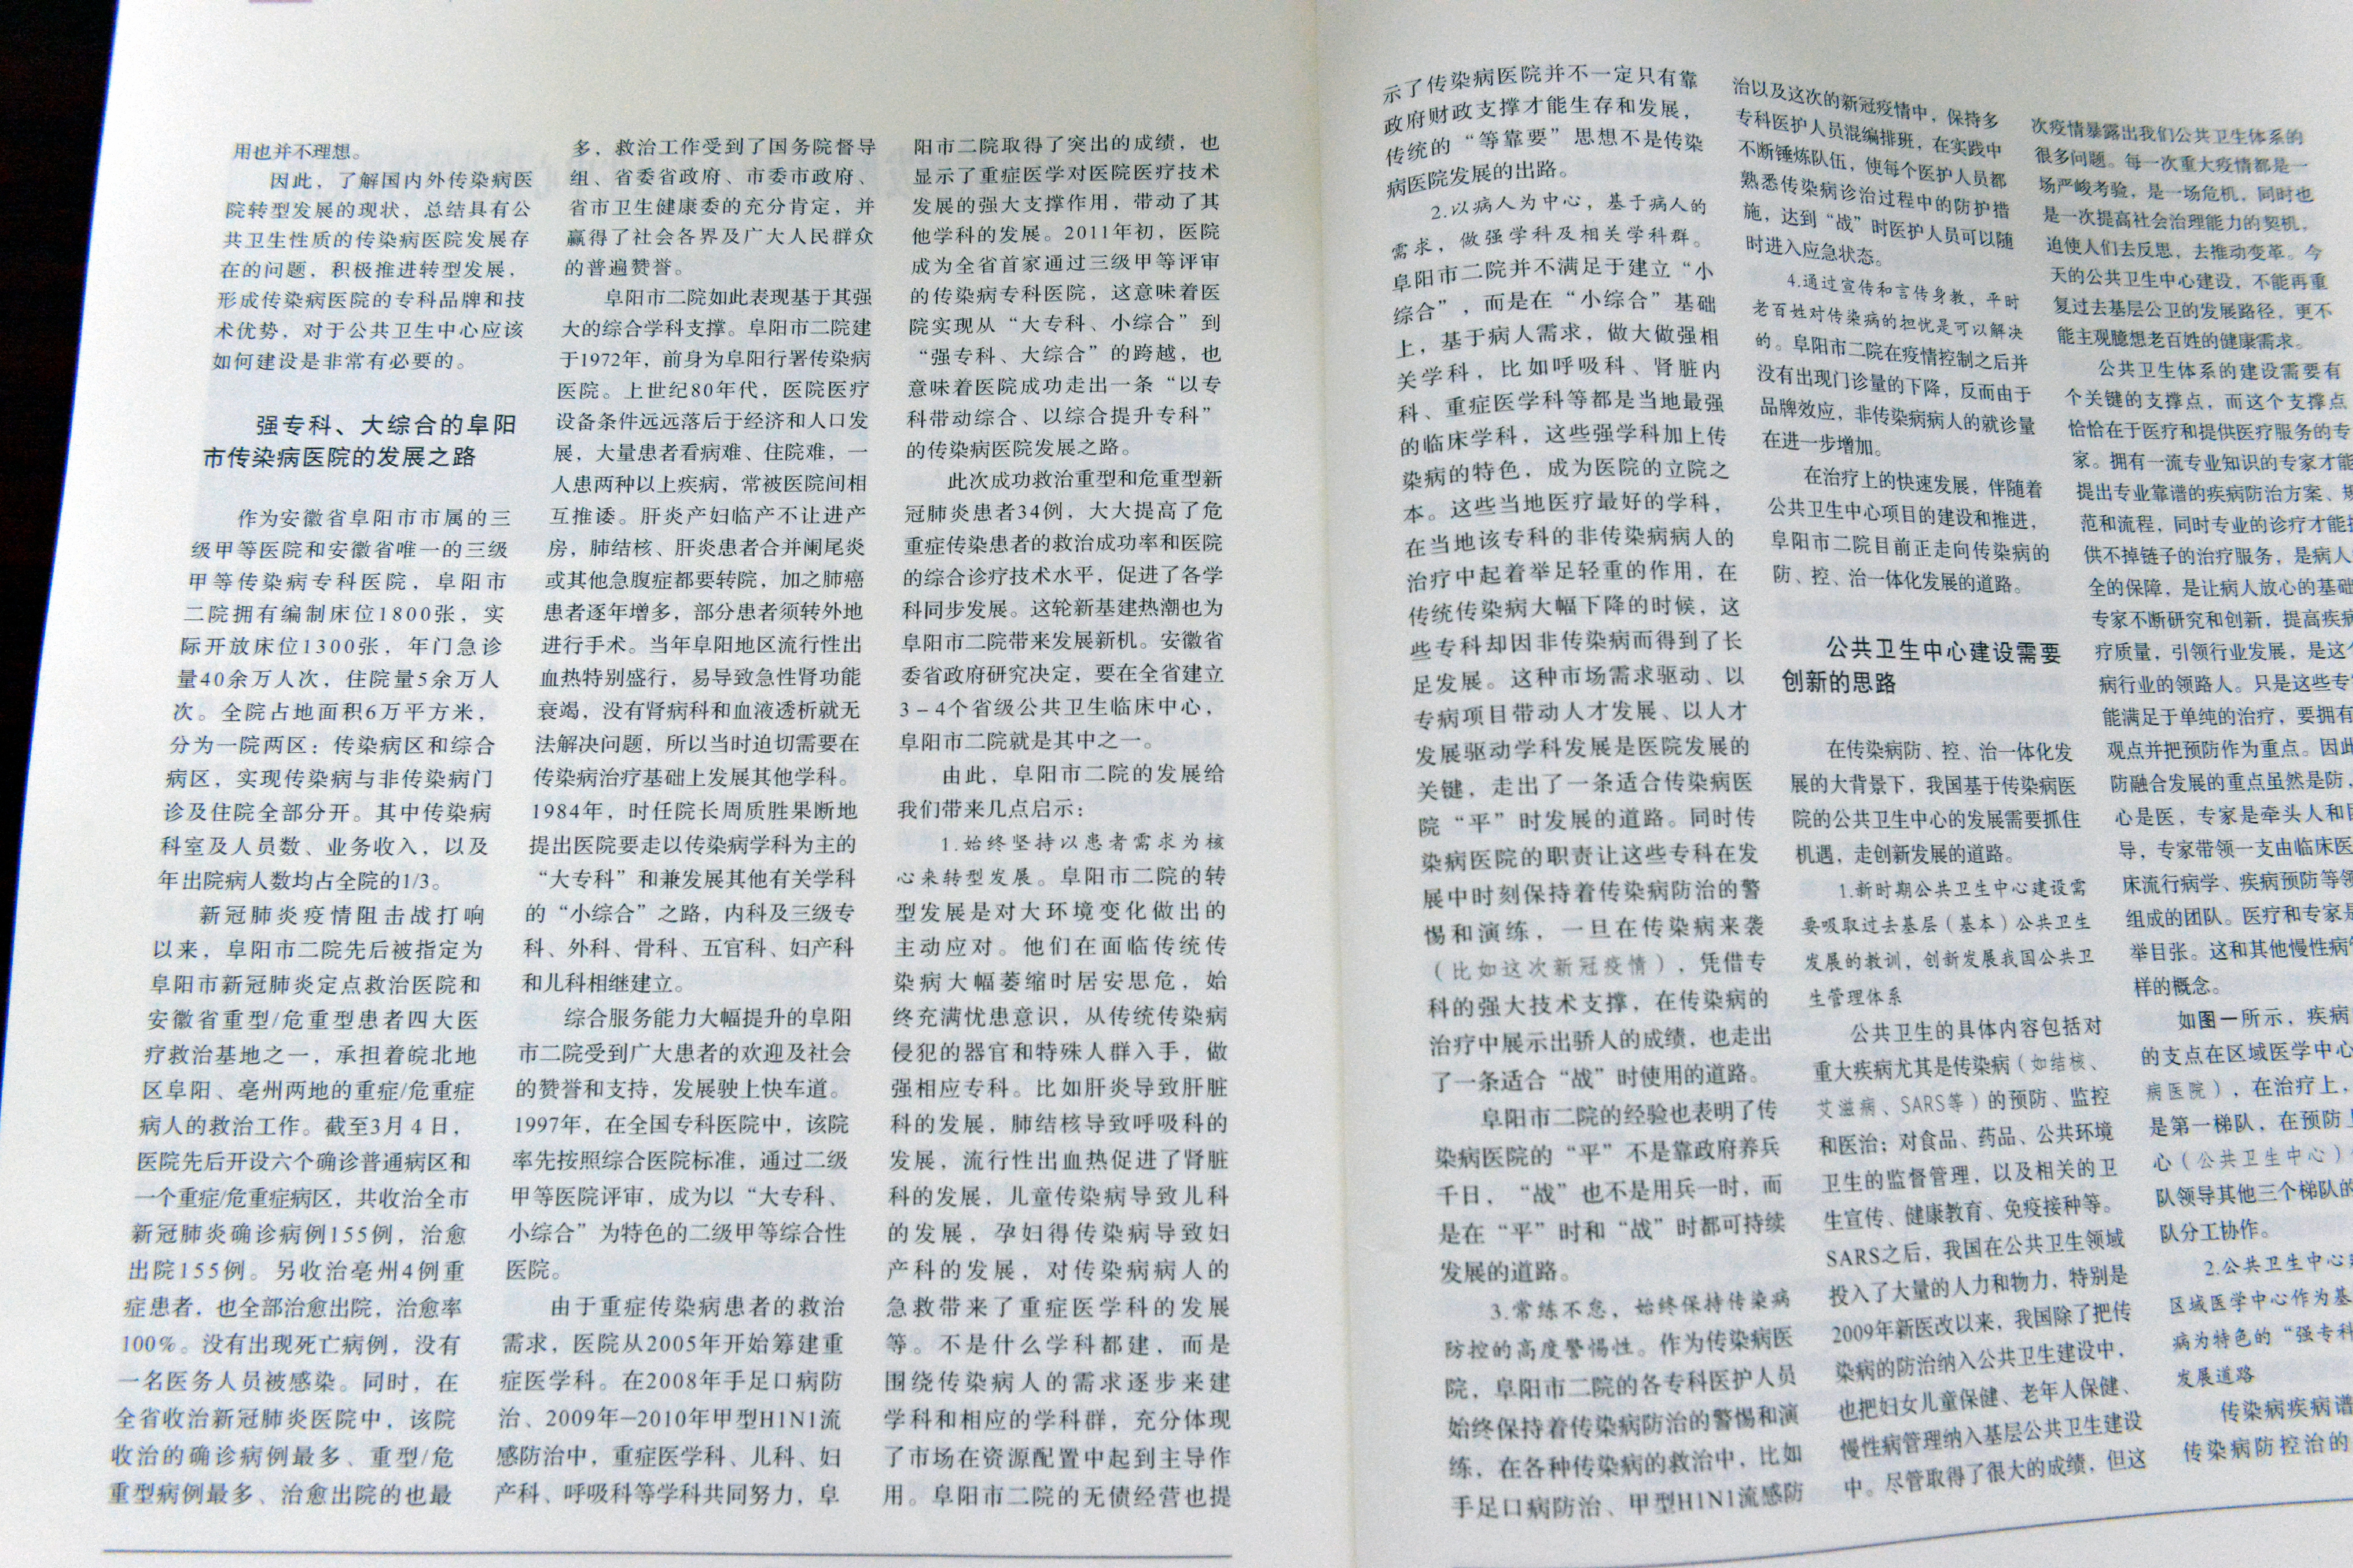 用也并不理想。
因此，了解国内外传染病医
院转型发展的现状，总结具有公
共卫生性质的传染病医院发展存
在的问题，积极推进转型发展，
形成传染病医院的专科品牌和技
术优势，对于公共卫生中心应该
如何建设是非常有必要的。
强专科、大综合的阜阳
市传染病医院的发展之路
作为安徽省阜阳市市属的三
级甲等医院和安徽省唯一的三级
甲等传染病专科医院，阜阳市
二院拥有编制床位1800张，实
际开放床位1300张，年门急诊
量40余万人次，住院量5余万人
次。全院占地面积6万平方米，
分为一院两区：传染病区和综合
病区，实现传染病与非传染病门
诊及住院全部分开。其中传染病
科室及人员数、业务收入，以及
年出院病人数均占全院的1/3。
新冠肺炎疫情阻击战打响
以来，阜阳市二院先后被指定为
阜阳市新冠肺炎定点救治医院和
安徽省重型/危重型患者四大医
疗救治基地之一，承担着皖北地
区阜阳、亳州两地的重症/危重症
病人的救治工作。截至3月4日，
医院先后开设六个确诊普通病区和
一个重症/危重症病区，共收治全市
新冠肺炎确诊病例155例，治愈
出院155例。另收治亳州4例重
症患者，也全部治愈出院，治愈率
100%。没有出现死亡病例，没有
一名医务人员被感染。同时，在
全省收治新冠肺炎医院中，该院
收治的确诊病例最多、重型/危
重型病例最多、治愈出院的也最
多，救治工作受到了国务院督导
组、省委省政府、市委市政府、
省市卫生健康委的充分肯定，并
赢得了社会各界及广大人民群众
的普遍赞誉。
阜阳市二院如此表现基于其强
大的综合学科支撑。阜阳市二院建
于1972年，前身为阜阳行署传染病
医院。上世纪80年代，医院医疗
设备条件远远落后于经济和人口发
展，大量患者看病难、住院难，一
人患两种以上疾病，常被医院间相
互推诿。肝炎产妇临产不让进产
房，肺结核、肝炎患者合并阑尾炎
或其他急腹症都要转院，加之肺癌
患者逐年增多，部分患者须转外地
进行手术。当年阜阳地区流行性出
血热特别盛行，易导致急性肾功能
衰竭，没有肾病科和血液透析就无
法解决问题，所以当时迫切需要在
传染病治疗基础上发展其他学科。
1984年，时任院长周质胜果断地
提出医院要走以传染病学科为主的
“大专科”和兼发展其他有关学科
的“小综合”之路，内科及三级专
科、外科、骨科、五官科、妇产科
和儿科相继建立。
综合服务能力大幅提升的阜阳
市二院受到广大患者的欢迎及社会
的赞誉和支持，发展驶上快车道。
1997年，在全国专科医院中，该院
率先按照综合医院标准，通过二级
甲等医院评审，成为以“大专科、
小综合”为特色的二级甲等综合性
医院。
由于重症传染病患者的救治
需求，医院从2005年开始筹建重
症医学科。在2008年手足口病防
治、2009年—2010年甲型H1N1流
感防治中，重症医学科、儿科、妇
产科、呼吸科等学科共同努力，阜
阳市二院取得了突出的成绩，也
显示了重症医学对医院医疗技术
发展的强大支撑作用，带动了其
他学科的发展。2011年初，医院
成为全省首家通过三级甲等评审
的传染病专科医院，这意味着医
院实现从“大专科、小综合”到
“强专科、大综合”的跨越，也
意味着医院成功走出一条“以专
科带动综合、以综合提升专科”
的传染病医院发展之路。
此次成功救治重型和危重型新
冠肺炎患者34例，大大提高了危
重症传染患者的救治成功率和医院
的综合诊疗技术水平，促进了各学
科同步发展。这轮新基建热潮也为
阜阳市二院带来发展新机。安徽省
委省政府研究决定，要在全省建立
3－4个省级公共卫生临床中心，
阜阳市二院就是其中之一。
由此，阜阳市二院的发展给
我们带来几点启示：
1.始终坚持以患者需求为核
心来转型发展。阜阳市二院的转
型发展是对大环境变化做出的
主动应对。他们在面临传统传
染病大幅萎缩时居安思危，始
终充满忧患意识，从传统传染病
侵犯的器官和特殊人群入手，做
强相应专科。比如肝炎导致肝脏
科的发展，肺结核导致呼吸科的
发展，流行性出血热促进了肾脏
科的发展，儿童传染病导致儿科
的发展，孕妇得传染病导致妇
产科的发展，对传染病病人的
急救带来了重症医学科的发展
等。不是什么学科都建，而是
围绕传染病人的需求逐步来建
学科和相应的学科群，充分体现
了市场在资源配置中起到主导作
用。阜阳市二院的无债经营也提
示了传染病医院并不一定只有靠
政府财政支撑才能生存和发展，
传统的“等靠要”思想不是传染
病医院发展的出路。
2.以病人为中心，基于病人的
需求，做强学科及相关学科群。
阜阳市二院并不满足于建立“小
综合”，而是在“小综合”基础
上，基于病人需求，做大做强相
关学科，比如呼吸科、肾脏内
科、重症医学科等都是当地最强
的临床学科，这些强学科加上传
染病的特色，成为医院的立院之
本。这些当地医疗最好的学科，
在当地该专科的非传染病病人的
治疗中起着举足轻重的作用，在
传统传染病大幅下降的时候，这
些专科却因非传染病而得到了长
足发展。这种市场需求驱动、以
专病项目带动人才发展、以人才
发展驱动学科发展是医院发展的
关键，走出了一条适合传染病医
院“平”时发展的道路。同时传
染病医院的职责让这些专科在发
展中时刻保持着传染病防治的警
惕和演练，一旦在传染病来袭
（比如这次新冠疫情），凭借专
科的强大技术支撑，在传染病的
治疗中展示出骄人的成绩，也走出
了一条适合“战”时使用的道路。
阜阳市二院的经验也表明了传
染病医院的“平”不是靠政府养兵
千日，“战”也不是用兵一时，而
是在“平”时和“战”时都可持续
发展的道路。
3.常练不怠，始终保持传染病
防控的高度警惕性。作为传染病医
院，阜阳市二院的各专科医护人员
始终保持着传染病防治的警惕和演
练，在各种传染病的救治中，比如
手足口病防治、甲型H1N1流感防
治以及这次的新冠疫情中，保持多
专科医护人员混编排班，在实践中
不断锤炼队伍，使每个医护人员都
熟悉传染病诊治过程中的防护措
施，达到“战”时医护人员可以随
时进入应急状态。
4.通过宣传和言传身教，平时
老百姓对传染病的担忧是可以解决
的。阜阳市二院在疫情控制之后并
没有出现门诊量的下降，反而由于
品牌效应，非传染病病人的就诊量
在进一步增加。
在治疗上的快速发展，伴随着
公共卫生中心项目的建设和推进，
阜阳市二院目前正走向传染病的
防、控、治一体化发展的道路。
公共卫生中心建设需要
创新的思路
在传染病防、控、治一体化发
展的大背景下，我国基于传染病医
院的公共卫生中心的发展需要抓住
机遇，走创新发展的道路。
1.新时期公共卫生中心建设需
要吸取过去基层（基本）公共卫生
发展的教训，创新发展我国公共卫
生管理体系
公共卫生的具体内容包括对
重大疾病尤其是传染病（如结核、
艾滋病、SARS等）的预防、监控
和医治；对食品、药品、公共环境
卫生的监督管理，以及相关的卫
生宣传、健康教育、免疫接种等。
SARS之后，我国在公共卫生领域
投入了大量的人力和物力，特别是
2009年新医改以来，我国除了把传
染病的防治纳入公共卫生建设中，
也把妇女儿童保健、老年人保健、
慢性病管理纳入基层公共卫生建设
中。尽管取得了很大的成绩，但这
次疫情暴露出我们公共卫生体系的
很多问题。每一次重大疫情都是一
场严峻考验，是一场危机，同时也
是一次提高社会治理能力的契机，
迫使人们去反思，去推动变革。今
天的公共卫生中心建设，不能再重
复过去基层公卫的发展路径，更不
能主观臆想老百姓的健康需求。
公共卫生体系的建设需要有
个关键的支撑点，而这个支撑点
恰恰在于医疗和提供医疗服务的专
家。拥有一流专业知识的专家才能
提出专业靠谱的疾病防治方案、规
范和流程，同时专业的诊疗才能提
供不掉链子的治疗服务，是病人
全的保障，是让病人放心的基础
专家不断研究和创新，提高疾病
疗质量，引领行业发展，是这个
病行业的领路人。只是这些专
能满足于单纯的治疗，要拥有
观点并把预防作为重点。因此
防融合发展的重点虽然是防，
心是医，专家是牵头人和
导，专家带领一支由临床医
床流行病学、疾病预防等领
组成的团队。医疗和专家是
举目张。这和其他慢性病
样的概念。
如图一所示，疾病
的支点在区域医学中心
病医院），在治疗上，
是第一梯队，在预防上
心（公共卫生中心）
队领导其他三个梯队的
队分工协作。
2.公共卫生中心
区域医学中心作为基
病为特色的“强专科
发展道路
传染病疾病谱
传染病防控治的